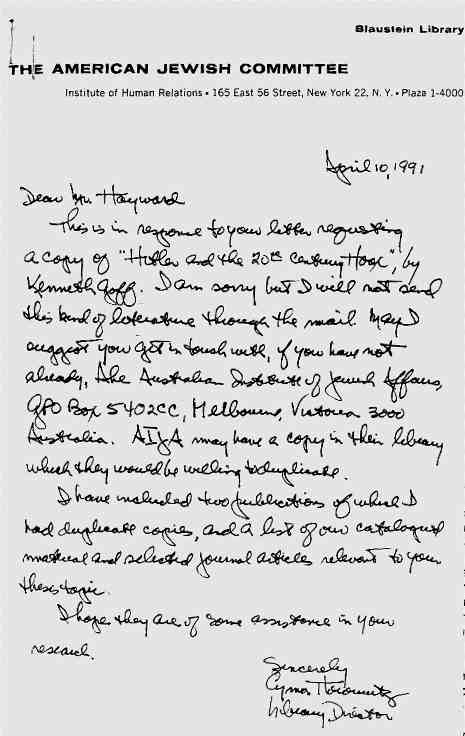 Blaustein Library
THE AMERICAN JEWISH COMMITTEE
Institute of Human Relations • 165 East 56 Street, New York 22, N. Y. • Plaza 1-4000
April 10, 1991
Dear Mr. Hayward
This is in response to your letter requesting
a copy of "Hitler and the 20th Century Hoax", by
Kenneth Goff. I am sorry but I will not send
this kind of literature through the mail. May I
suggest you get in touch with, if you have not
already, the Australian Institute of Jewish Affairs,
GPO Box 5402CC, Melbourne, Victoria 3000
Australia. AIJA may have a copy in their library
which they would be willing to duplicate.
I have included two publications of which I
had duplicate copies, and a list of our catalogued
material and selected journal articles relevant to your
thesis topic.
I hope they are of some assistance in your
research.
Sincerely
Cyma Horowitz
Library Director